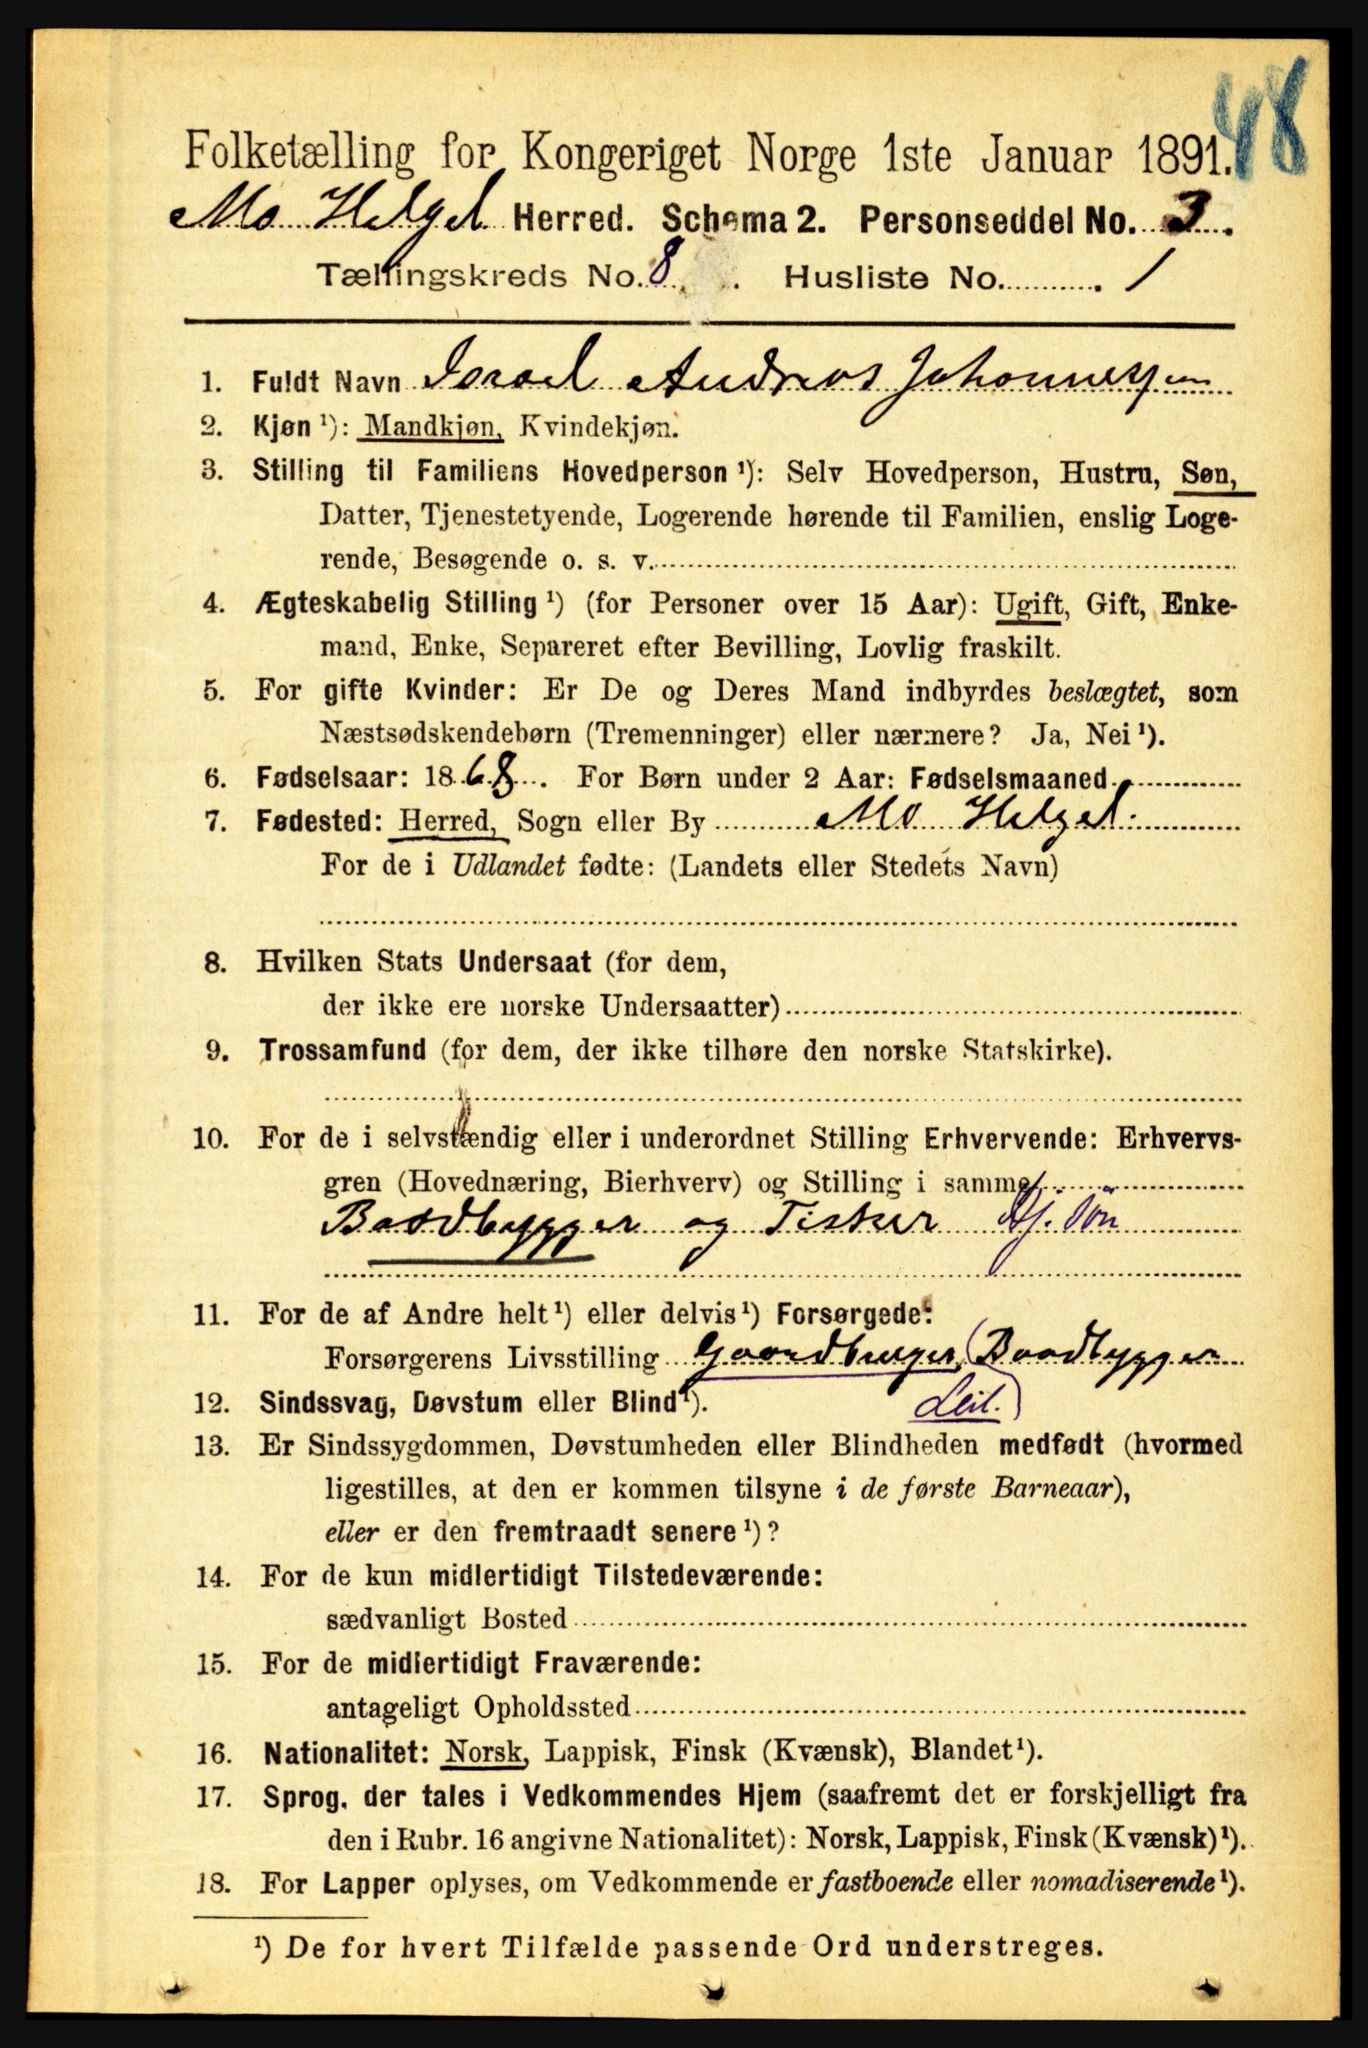 48
Folketælling for Kongeriget Norge 1ste Januar 1891.
Mo Helgel Herred. Schema 2. Personseddel No. 3.
Tællingskreds No. 8. Husliste No. 1
1. Fuldt Navn Israel Andreas Johannessen
2. Kjøn ¹): Mandkjøn, Kvindekjøn.
3. Stilling til Familiens Hovedperson ¹): Selv Hovedperson, Hustru, Søn,
Datter, Tjenestetyende, Logerende hørende til Familien, enslig Loge-
rende, Besøgende o. s. v.
4. Ægteskabelig Stilling ¹) (for Personer over 15 Aar): Ugift, Gift, Enke-
mand, Enke, Separeret efter Bevilling, Lovlig fraskilt.
5. For gifte Kvinder: Er De og Deres Mand indbyrdes beslægtet, som
Næstsødskendebørn (Tremenninger) eller nærmere? Ja, Nei ¹).
6. Fødselsaar: 1868. For Børn under 2 Aar: Fødselsmaaned
7. Fødested: Herred, Sogn eller By Mo Helgel.
For de i Udlandet fødte: (Landets eller Stedets Navn)
8. Hvilken Stats Undersaat (for dem,
der ikke ere norske Undersaatter)
9. Trossamfund (for dem, der ikke tilhøre den norske Statskirke).
10. For de i selvstændig eller i underordnet Stilling Erhvervende: Erhvervs-
gren (Hovednæring, Bierhverv) og Stilling i samme
Baadbygger og Fisker Hj. Søn
11. For de af Andre helt ¹) eller delvis ¹) Forsørgede:
Forsørgerens Livsstilling Gaardbruger, (Baadbygger
Leil.)
12. Sindssvag, Døvstum eller Blind ¹).
13. Er Sindssygdommen, Døvstumheden eller Blindheden medfødt (hvormed
ligestilles, at den er kommen tilsyne i de første Barneaar),
eller er den fremtraadt senere ¹)?
14. For de kun midlertidigt Tilstedeværende:
sædvanligt Bosted
15. For de midlertidigt Fraværende:
antageligt Opholdssted
16. Nationalitet: Norsk, Lappisk, Finsk (Kvænsk), Blandet ¹).
17. Sprog, der tales i Vedkommendes Hjem (saafremt det er forskjelligt fra
den i Rubr. 16 angivne Nationalitet): Norsk, Lappisk, Finsk (Kvænsk) ¹).
18. For Lapper oplyses, om Vedkommende er fastboende eller nomadiserende ¹).
¹) De for hvert Tilfælde passende Ord understreges.